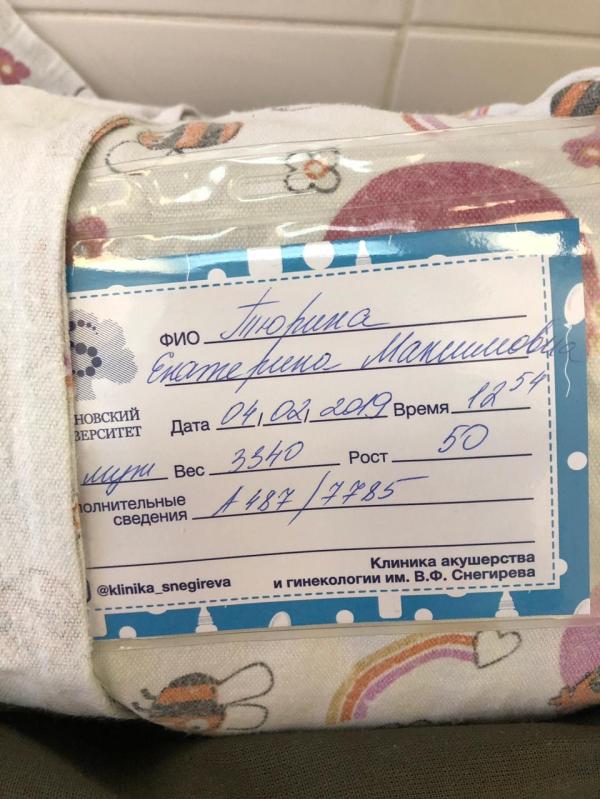 ФИО Тюрина
Екатерина Максимовна
НОВСКИЙ
ВЕРСИТЕТ
Дата 04,02,2019 Время 12 54
муж Вес 3340 Рост 50
полнительные
сведения А 487/7785
Клиника акушерства
@klinika_snegireva и гинекологии им. В.Ф. Снегирева